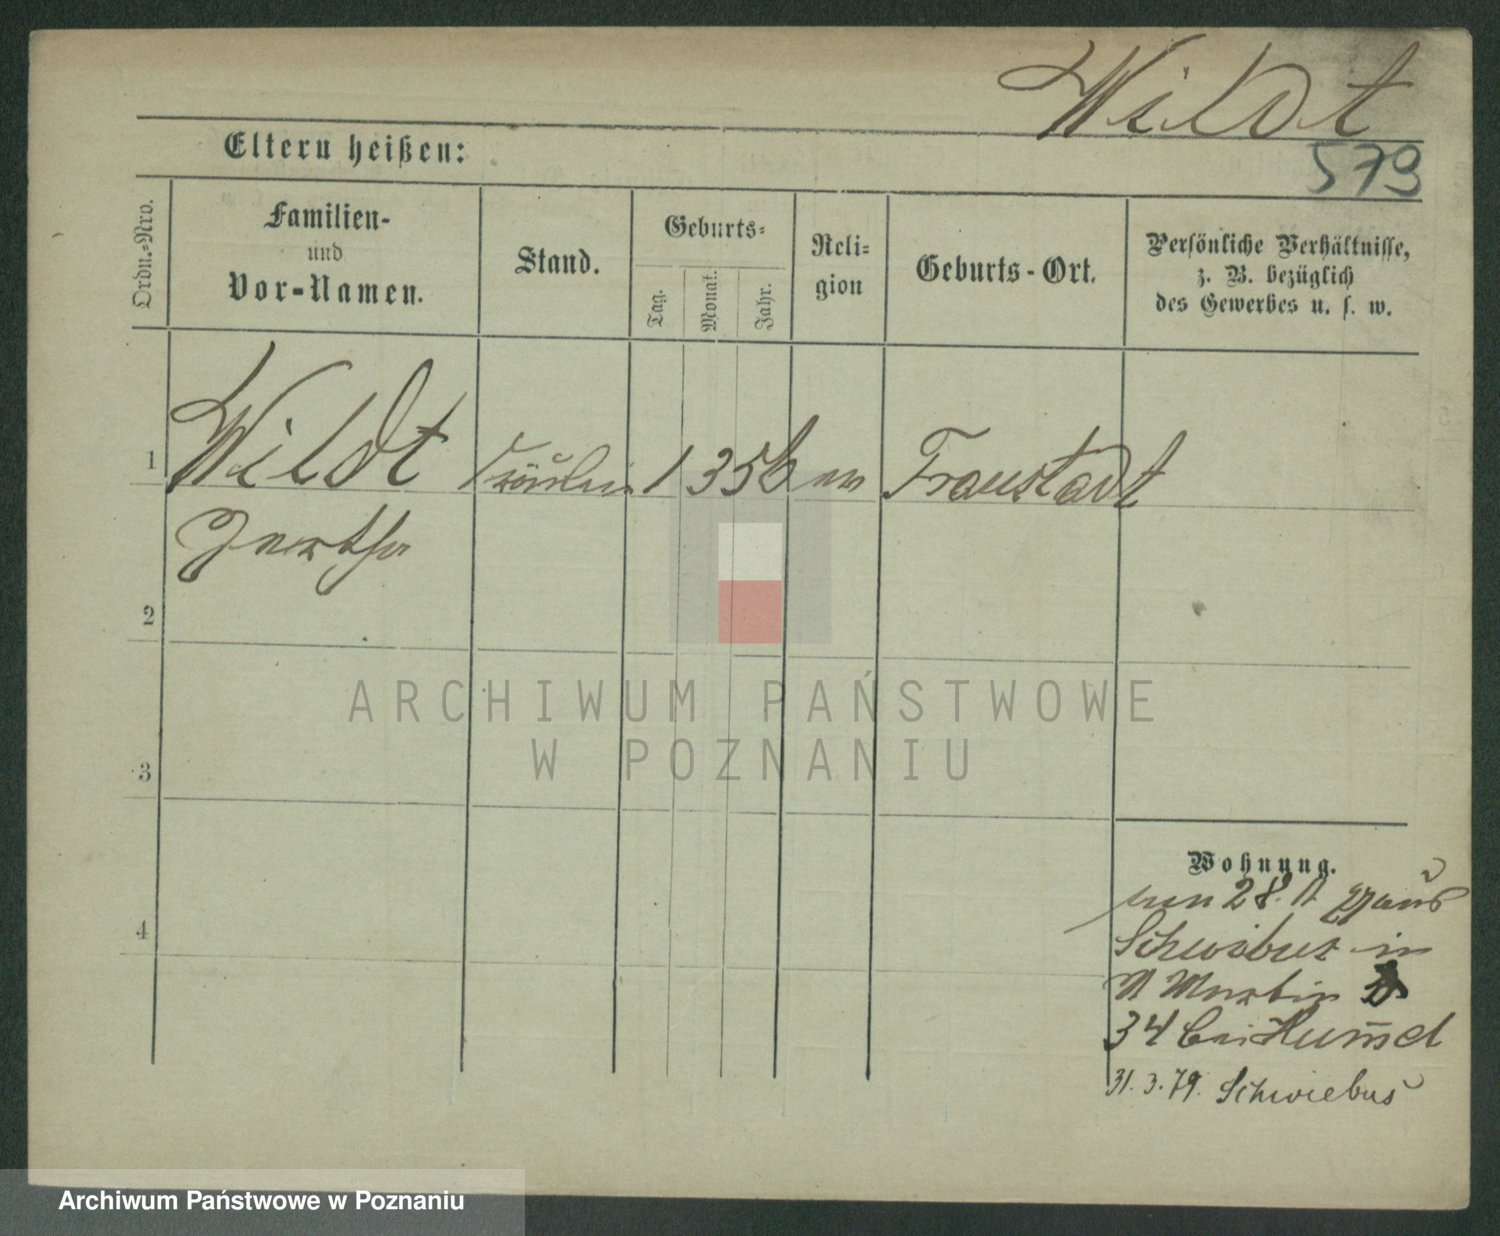 Wildt
579
Eltern heißen:
Ordn.-Nro.
Familien-
und
Vor-Namen.
Stand.
Geburts-
Tag.
Monat.
Jahr.
Reli-
gion
Geburts-Ort.
Persönliche Verhältnisse,
z. B. bezüglich
des Gewerbes u. s. w.
1 Wildt Fräulein 1 3 56 ev Fraustadt
Bertha
2
ARCHIWUM PAŃSTWOWE
W POZNANIU
3
4
Wohnung.
von 28. aus
Schwiebus in
Martin
34 bei Hummel
31.3.79. Schwiebus
Archiwum Państwowe w Poznaniu